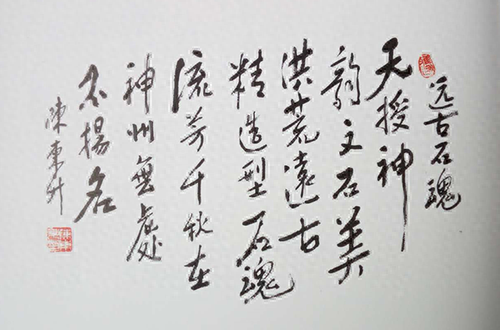 远古石魂
天授神
韵文石美
洪荒遠古
精造型石魂
流芳千秋在
神州無處
不揚名
陳東升